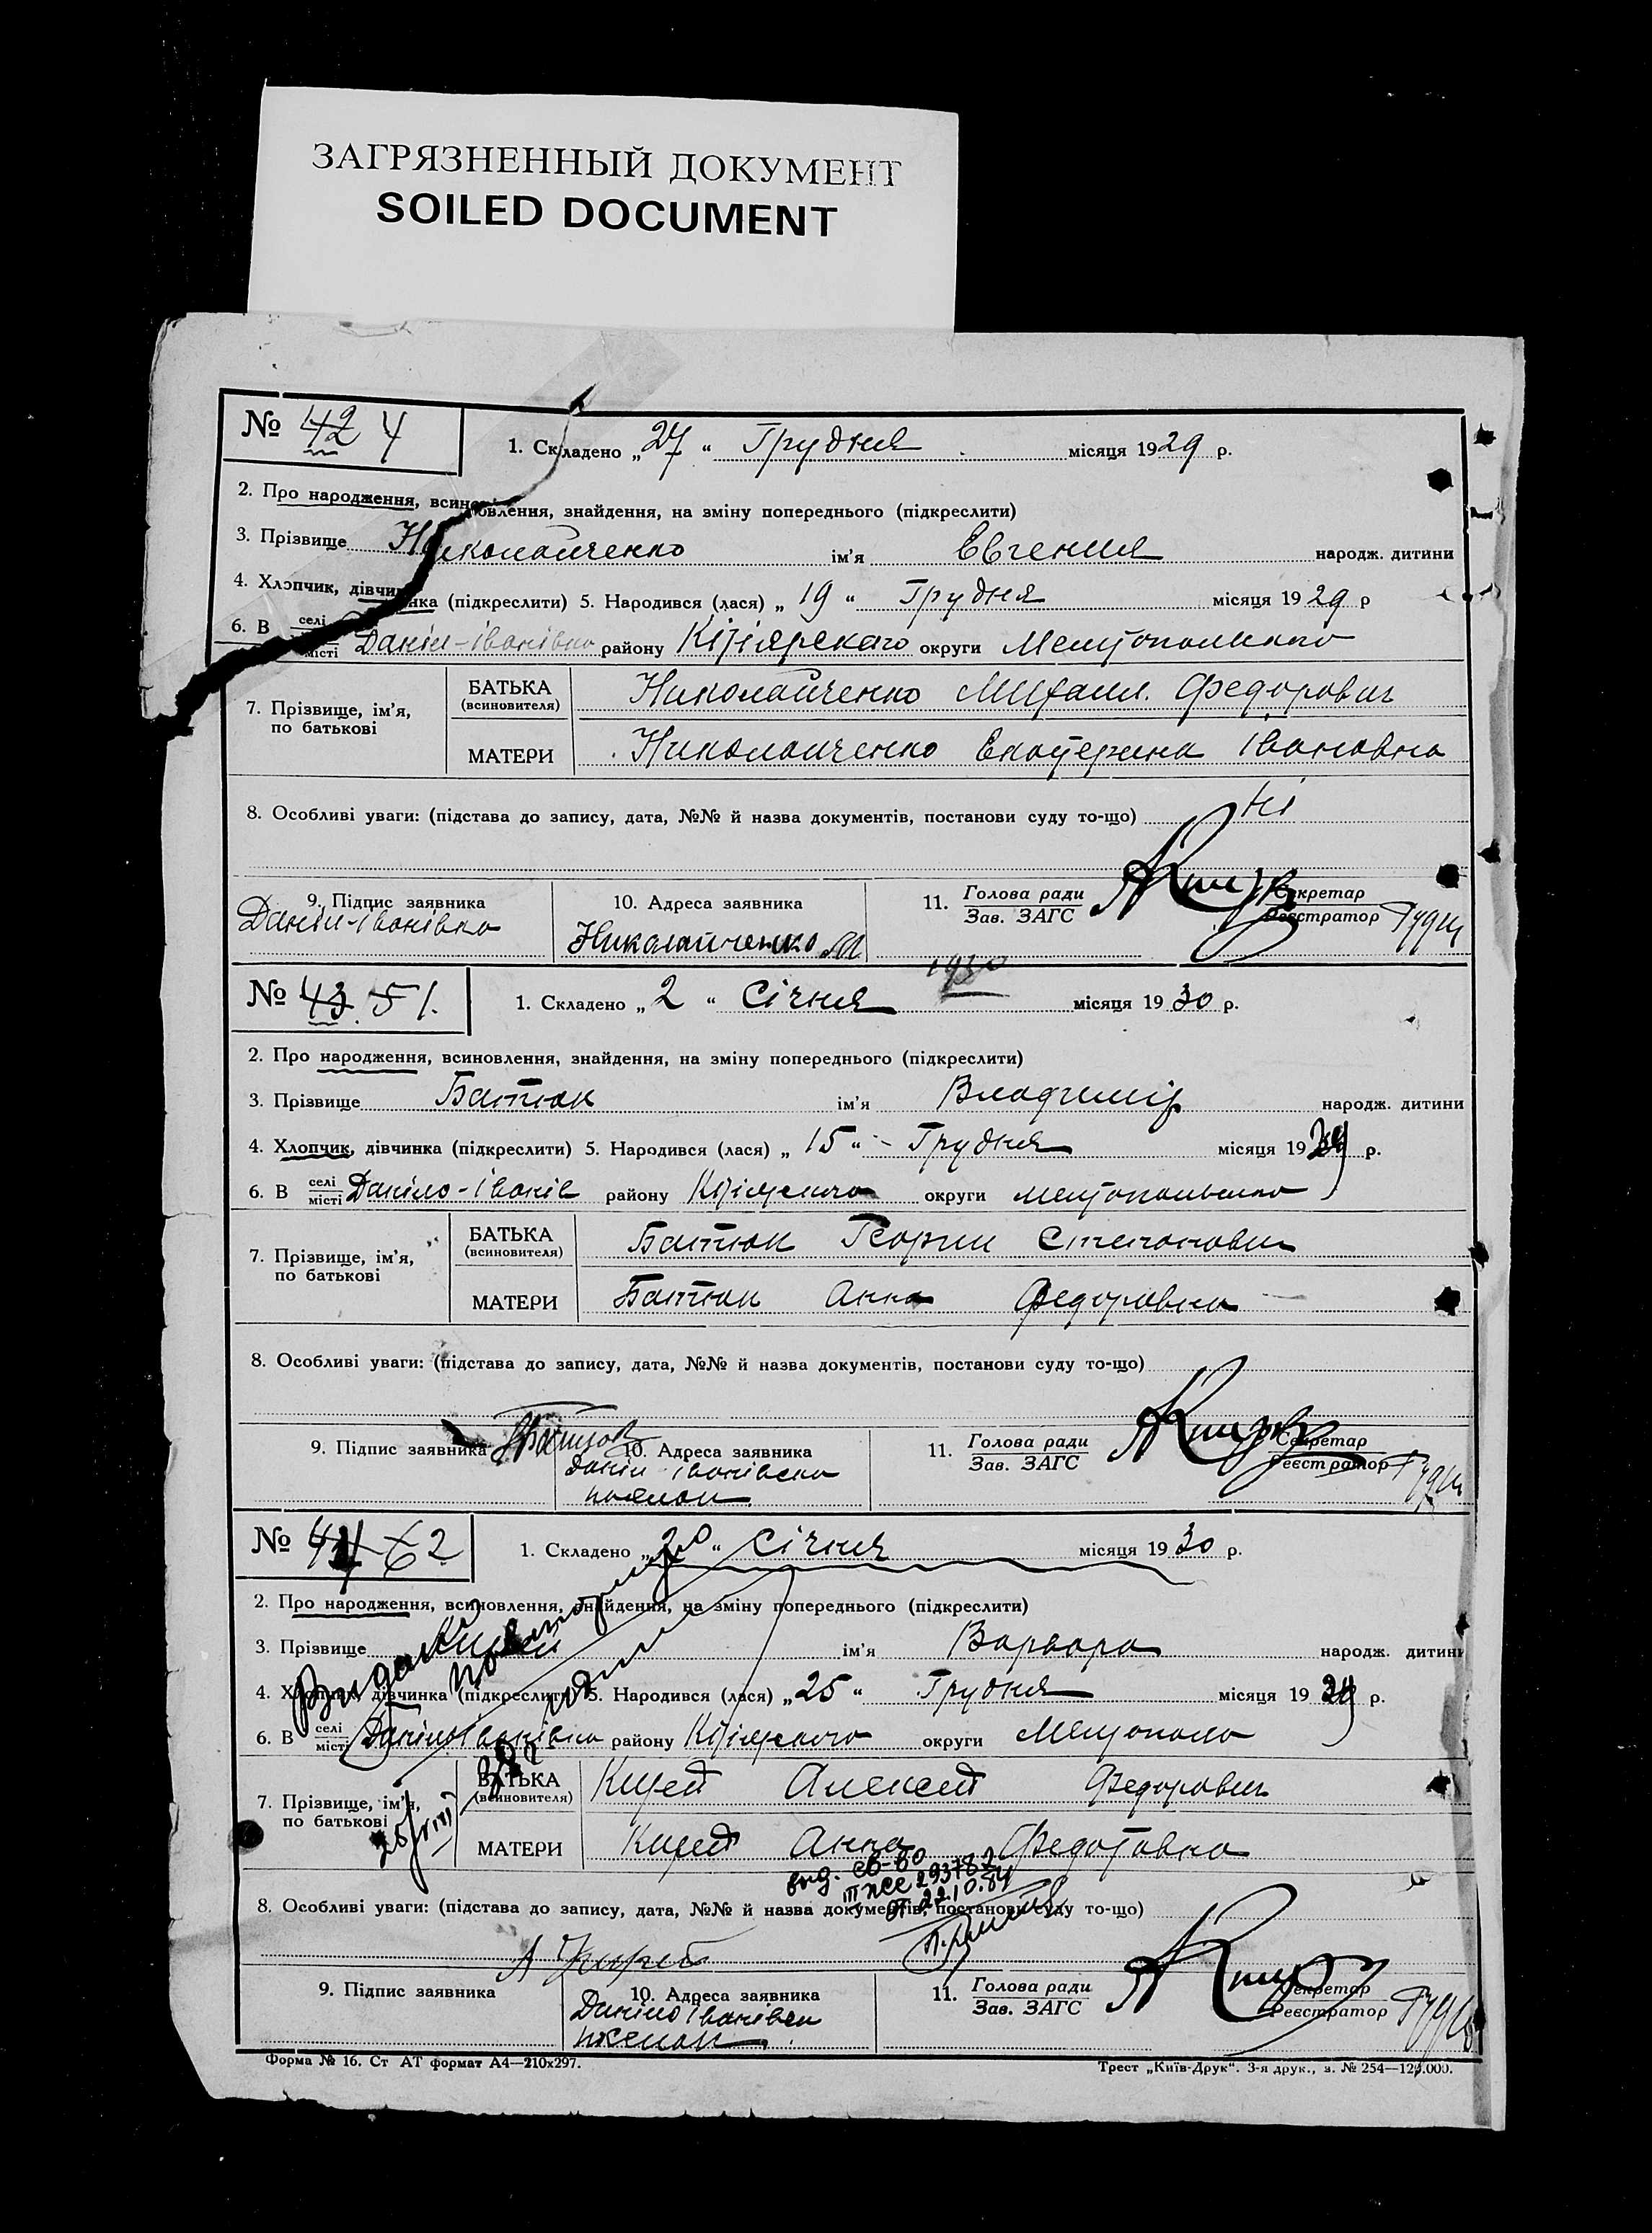 ЗАГРЯЗНЕННЫЙ ДОКУМЕНТ
SOILED DOCUMENT
№ 42 4
1. Складено „27“ Грудня місяця 1929 р.
2. Про народження, всиновлення, знайдення, на зміну попереднього (підкреслити)
3. Прізвище Николайченко ім'я Евгения народж. дитини
4. Хлопчик, дівчинка (підкреслити) 5. Народився (лася) „19“ Грудня місяця 1929 р
6. В селі місті Даніл-Іванівка району Кізіярского округи Мелітопольского
7. Прізвище, ім'я, по батькові
БАТЬКА (всиновителя) Николайченко Михаил Федорович
МАТЕРИ Николайченко Екатерина Івановна
8. Особливі уваги: (підстава до запису, дата, №№ й назва документів, постанови суду то-що) Ні
9. Підпис заявника 10. Адреса заявника 11. Голова ради Зав. ЗАГС Секретар Реєстратор
Даніл-Іванівка Николайченко М
1930
№ 43 51.
1. Складено „2“ Січня місяця 1930 р.
2. Про народження, всиновлення, знайдення, на зміну попереднього (підкреслити)
3. Прізвище Батюк ім'я Владимір народж. дитини
4. Хлопчик, дівчинка (підкреслити) 5. Народився (лася) „15“ Грудня місяця 1929 р.
6. В селі місті Даніло-Іванів району округи
7. Прізвище, ім'я, по батькові
БАТЬКА (всиновителя) Батюк Георгии Степанович
МАТЕРИ Батюк Анна Федоровна
8. Особливі уваги: (підстава до запису, дата, №№ й назва документів, постанови суду то-що)
9. Підпис заявника 10. Адреса заявника 11. Голова ради Зав. ЗАГС Секретар Реєстратор
Даніл Іванівска
№ 44 62
1. Складено „20“ Січня місяця 1930 р.
2. Про народження, всиновлення, знайдення, на зміну попереднього (підкреслити)
3. Прізвище ім'я Варвара народж. дитини
4. Хлопчик, дівчинка (підкреслити) 5. Народився (лася) „25“ Грудня місяця 1929 р.
6. В селі місті Даніло Іванівка району округи Мелитополо
7. Прізвище, ім'я, по батькові
БАТЬКА (всиновителя) Кирей Алексей Федорович
МАТЕРИ Кирей Анна Федотовна
выд. св-во
III ЖС 293782
от 22.10.84
8. Особливі уваги: (підстава до запису, дата, №№ й назва документів, постанови суду то-що)
9. Підпис заявника 10. Адреса заявника 11. Голова ради Зав. ЗАГС Секретар Реєстратор
Даніло Іванівск
Форма № 16. Ст АТ формат А4—210х297.
Трест „Київ-Друк“. 3-я друк., з. № 254—125.000.